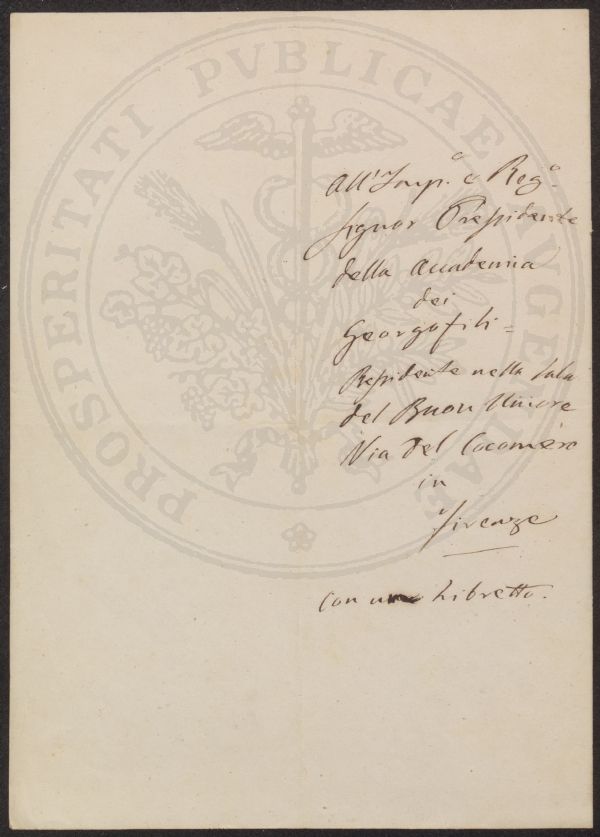 PROSPERITATI PVBLICAE AVGENDAE
All'Imp.e e Reg.e
Signor Pressidente
della Accademia
dei
Georgofili=
Ressidente nella Sala
del Buon Umore
Via del Cocomero
in
Firenze
con uno Libretto.